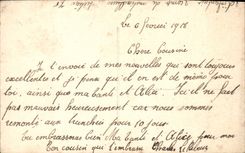 Le 6 Fevrier 1916
Chere Cousine
Je t'envoie de mes nouvelle qui sont toujour
excellentes et je pense qu'il en est de même pour
toi, ainsi que ma tante et Alice. Ici il ne fait
pas mauvais heureusement car nous sommes
remonté aux tranchées pour 10 jours
Tu embrasseras bien Ma tante et Alice pour moi
Ton cousin qui t'embrasse